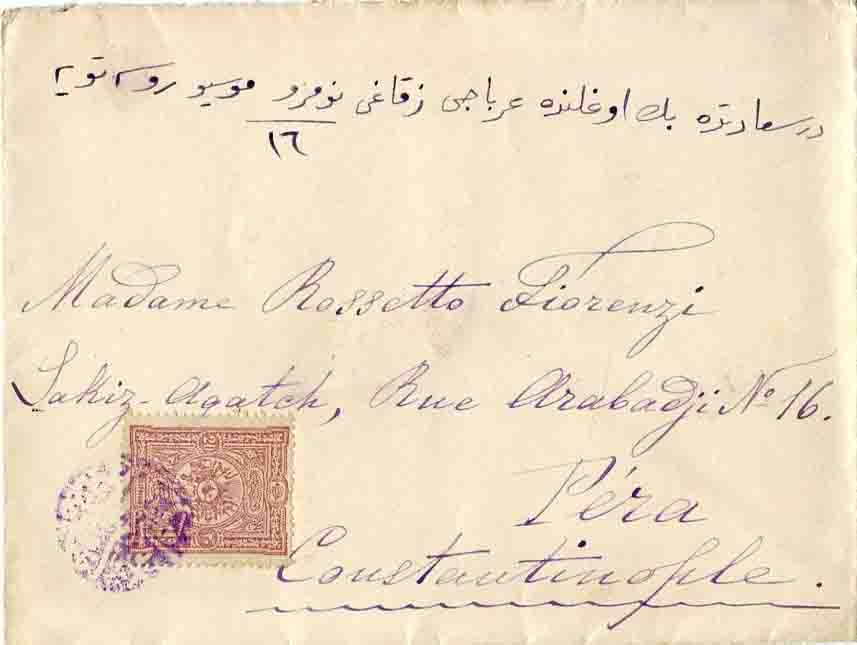 در سعادتده بك اوغلنده عرباجی زقاغی نومرو موسیو روسه تویه
١٦
Madame Rossetto Fiorenzi
Sakiz-Agatch, Rue Arabadji No 16.
Péra
Constantinople.